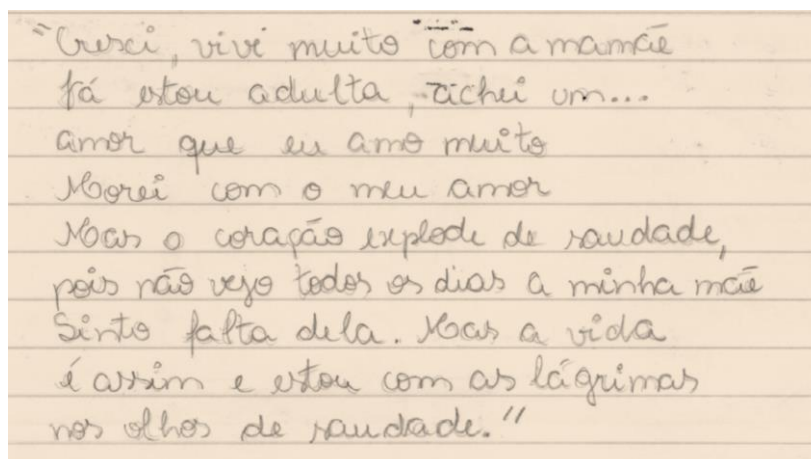 "Cresci, vivi muito com a mamãe
Já estou adulta, achei um...
amor que eu amo muito
Morei com o meu amor
Mas o coração explode de saudade,
pois não vejo todos os dias a minha mãe
Sinto falta dela. Mas a vida
é assim e estou com as lágrimas
nos olhos de saudade."